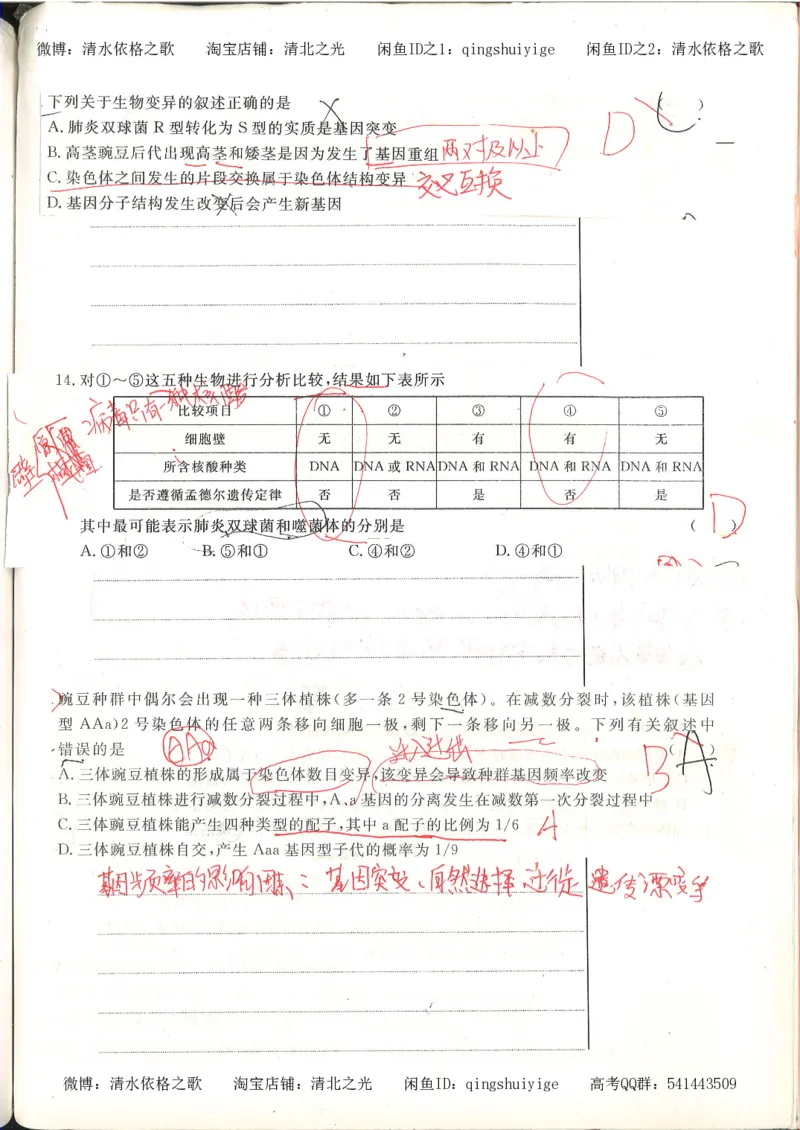 微博：清水依格之歌 淘宝店铺：清北之光 闲鱼ID之1：qingshuiyige 闲鱼ID之2：清水依格之歌
下列关于生物变异的叙述正确的是 ( )
D
A.肺炎双球菌R型转化为S型的实质是基因突变
B.高茎豌豆后代出现高茎和矮茎是因为发生了基因重组 两对及以上
C.染色体之间发生的片段交换属于染色体结构变异 交叉互换
D.基因分子结构发生改变后会产生新基因
14.对①～⑤这五种生物进行分析比较,结果如下表所示
病毒只有一种核酸
比较项目 ① ② ③ ④ ⑤
细胞壁 无 无 有 有 无
所含核酸种类 DNA DNA或RNA DNA和RNA DNA和RNA DNA和RNA
是否遵循孟德尔遗传定律 否 否 是 否 是
其中最可能表示肺炎双球菌和噬菌体的分别是 ( )
D
A.①和② B.⑤和① C.④和② D.④和①
豌豆种群中偶尔会出现一种三体植株(多一条2号染色体)。在减数分裂时,该植株(基因
型AAa)2号染色体的任意两条移向细胞一极,剩下一条移向另一极。下列有关叙述中
错误的是 ( )
AAa
B A
A.三体豌豆植株的形成属于染色体数目变异,该变异会导致种群基因频率改变
B.三体豌豆植株进行减数分裂过程中,A、a基因的分离发生在减数第一次分裂过程中
C.三体豌豆植株能产生四种类型的配子,其中a配子的比例为1/6
D.三体豌豆植株自交,产生Aaa基因型子代的概率为1/9
基因频率的影响因素：基因突变、自然选择、迁徙 遗传漂变等
微博：清水依格之歌 淘宝店铺：清北之光 闲鱼ID：qingshuiyige 高考QQ群：541443509